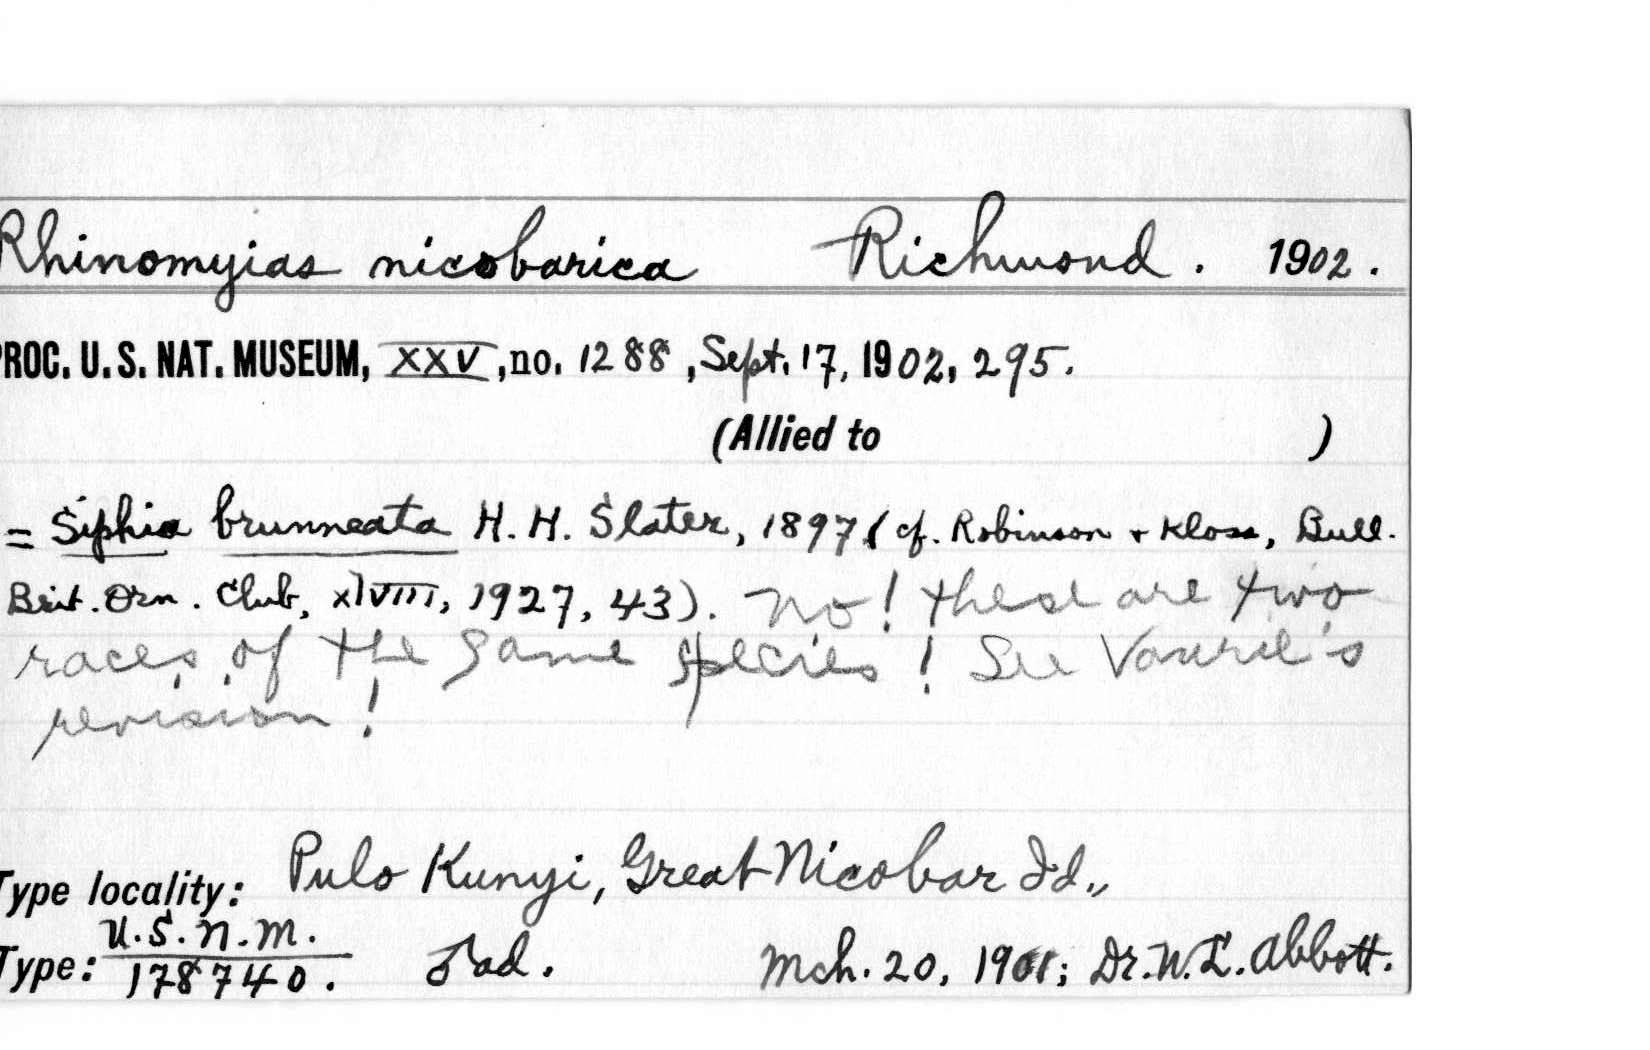 Rhinomyias nicobarica Richmond. 1902.
PROC. U. S. NAT. MUSEUM, XXV, no. 1288, Sept. 17, 1902, 295.
(Allied to )
= Siphia brunneata H. H. Slater, 1897 (cf. Robinson + Kloss, Bull.
Brit. Orn. Club, xlVIII, 1927, 43). No! these are two
races of the same species! See Vaurie's
revision!
Type locality: Pulo Kunyi, Great Nicobar Id.,
Type: U.S.N.M. 178740. ♂ ad. Mch. 20, 1901; Dr. W. L. Abbott.